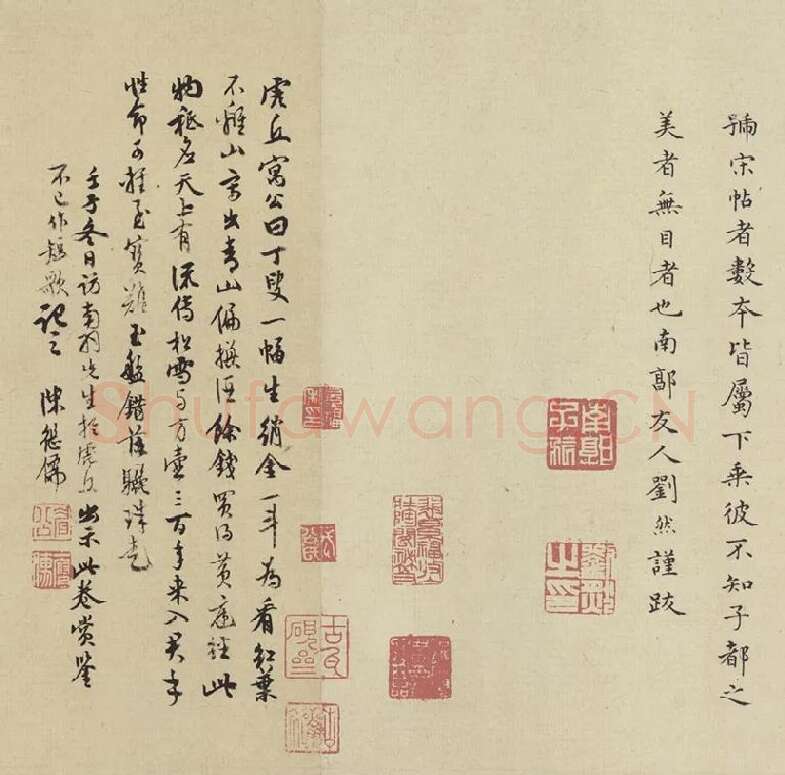 號宋帖者數本皆屬下乘彼不知子都之
美者無目者也南郭友人劉然謹跋
虎丘寓公曰丁叟一幅生綃金一斗為看紅葉
不離山出青山偏酒餘錢買得黃庭經此
物秪天上有流傳松雪與方壺三百年來入君手
性命可輕至寶難玉盤錯落驪珠走
壬子冬日訪南羽先生於虎丘出示此卷賞鑒
不已作短歌記之 陳繼儒
劉然之印
古瓦硯齋
Shufawang.CN